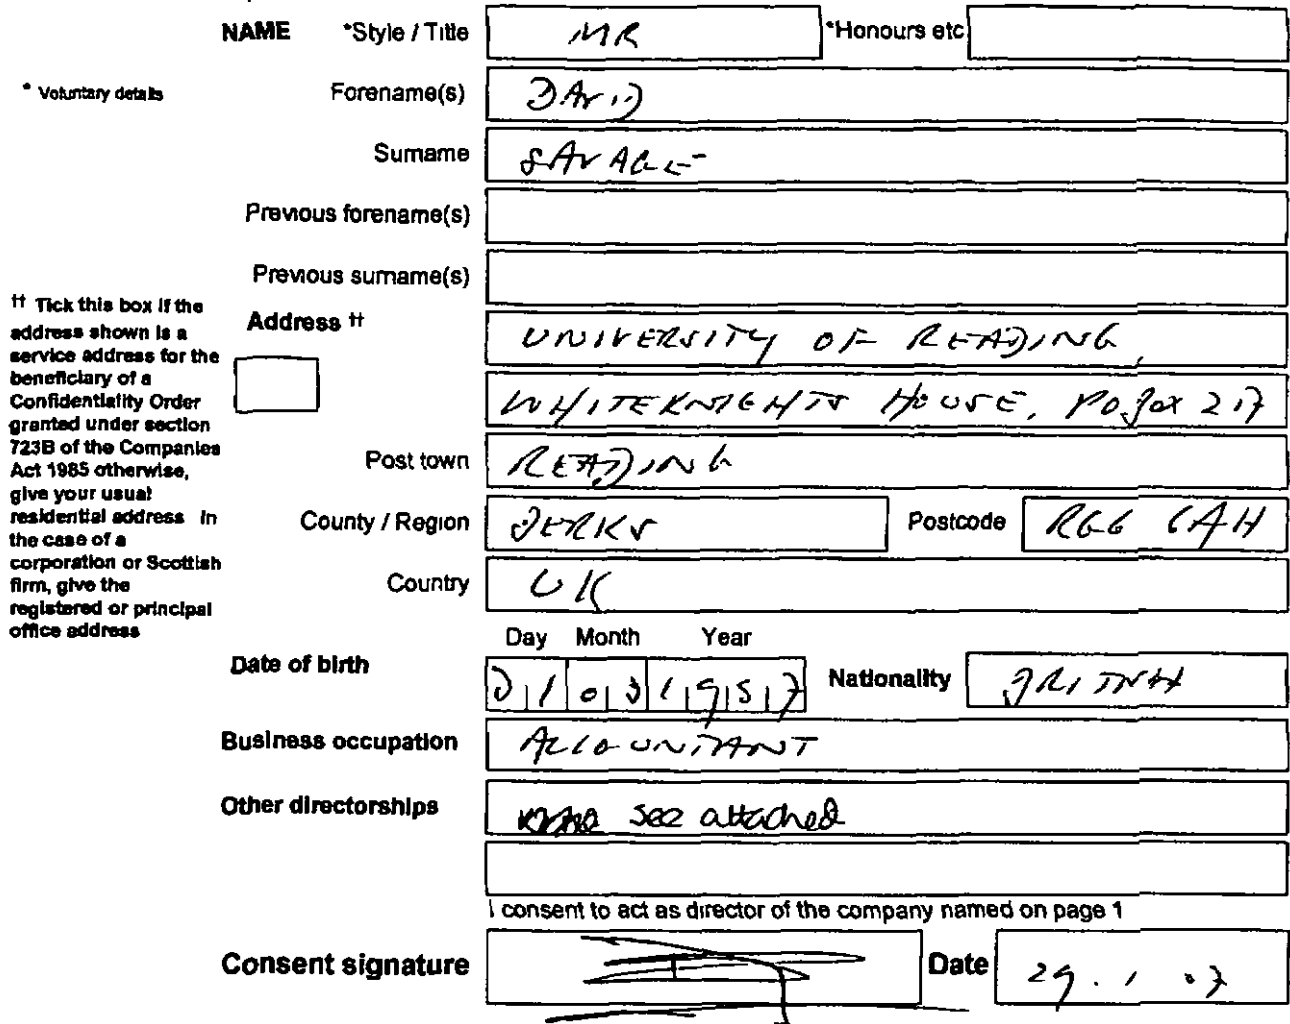 NAME *Style / Title MR *Honours etc
* Voluntary details Forename(s) DAVID
Surname SAVAGE
Previous forename(s)
Previous surname(s)
†† Tick this box if the
address shown is a
service address for the
beneficiary of a
Confidentiality Order
granted under section
723B of the Companies
Act 1985 otherwise,
give your usual
residential address In
the case of a
corporation or Scottish
firm, give the
registered or principal
office address
Address ††
UNIVERSITY OF READING,
WHITEKNIGHTS HOUSE, PO Box 217
Post town READING
County / Region BERKS Postcode RG6 6AH
Country UK
Day Month Year
Date of birth 03 1957 Nationality BRITISH
Business occupation ACCOUNTANT
Other directorships see attached
I consent to act as director of the company named on page 1
Consent signature Date 29.1.07